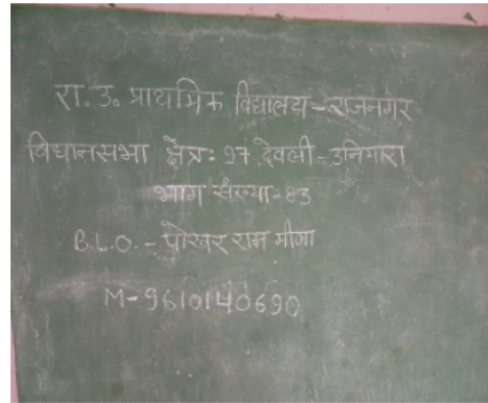 रा. उ. प्राथमिक विद्यालय - राजनगर
विधानसभा क्षेत्र: 97 देवली - उनियारा
भाग संख्या - 83
B.L.O. - पोखर राम मीणा
M - 9610140690